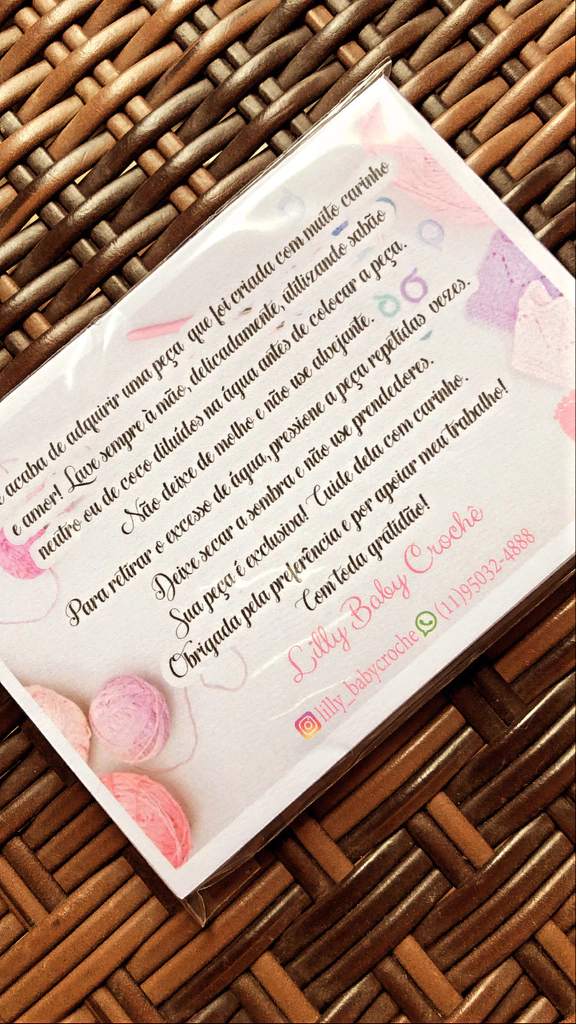 acaba de adquirir uma peça que foi criada com muito carinho
e amor! Lave sempre à mão, delicadamente, utilizando sabão
neutro ou de coco diluídos na água antes de colocar a peça.
Não deixe de molho e não use alvejante.
Para retirar o excesso de água, pressione a peça repetidas vezes.
Deixe secar a sombra e não use prendedores.
Sua peça é exclusiva! Cuide dela com carinho.
Obrigada pela preferência e por apoiar meu trabalho!
Com toda gratidão!
Lilly Baby Crochê
lilly_babycroche (11)95032-4888